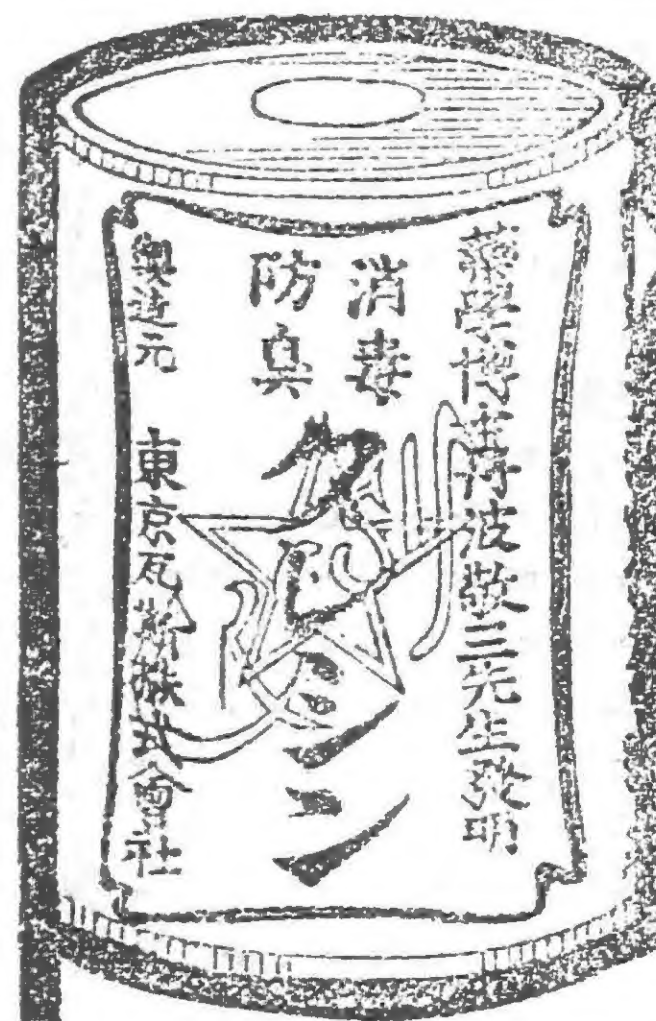 藥學博士丹波敬三先生發明
消毒
防臭
製造元 東京瓦斯株式會社